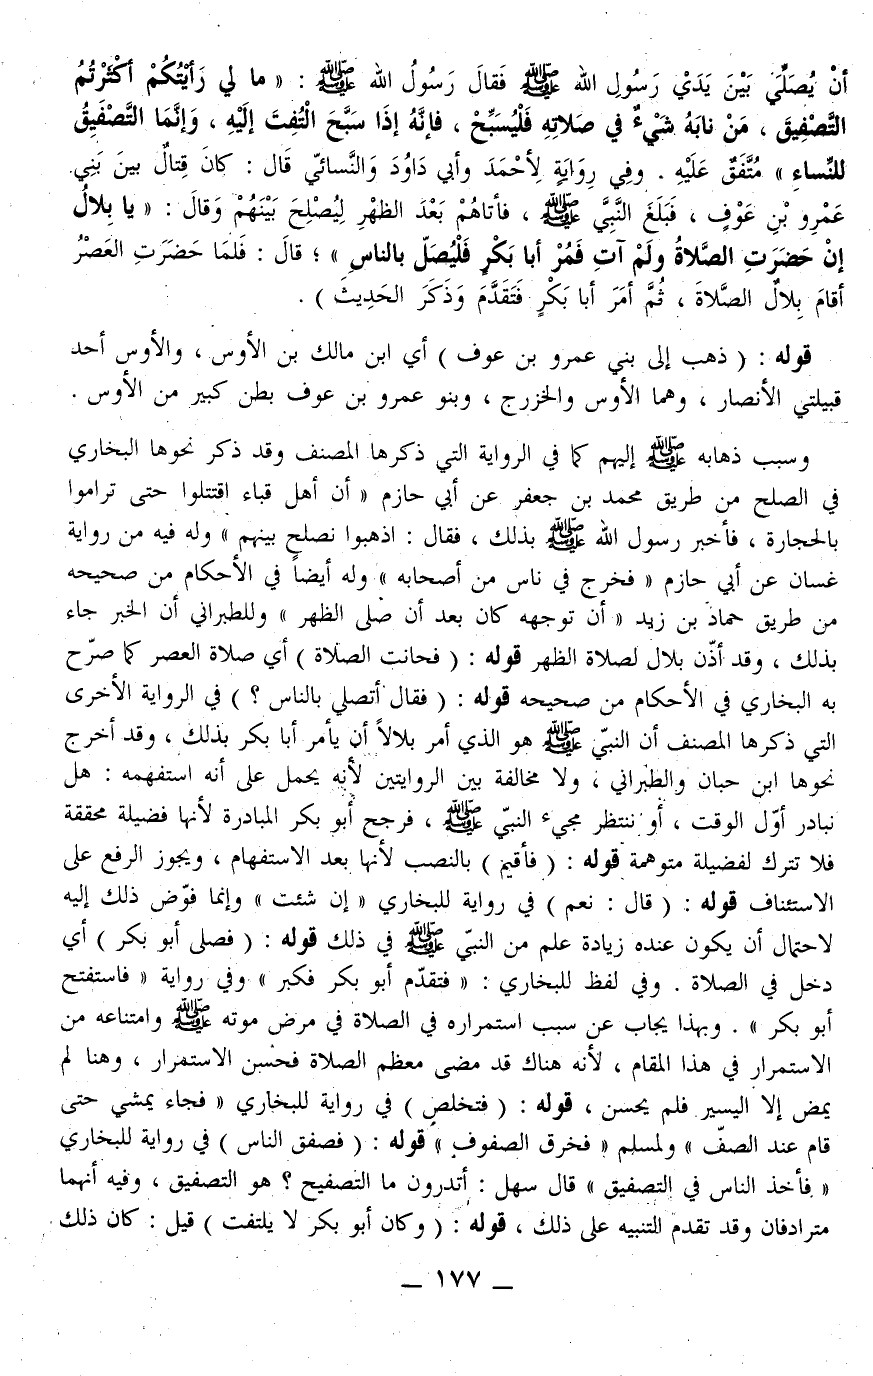 أنْ يُصَلِّيَ بَيْنَ يَدَيْ رَسُولِ الله ﷺ فَقالَ رَسُولُ الله ﷺ : « ما لي رَأيْتُكُمْ أكْثَرْتُمُ
التَّصْفِيقَ ، مَنْ نابَهُ شَيْءٌ في صَلاتِهِ فَلْيُسَبِّحْ ، فإنَّهُ إذَا سَبَّحَ الْتُفِتَ إلَيْهِ ، وَإنَّمَا التَّصْفِيقُ
للنِّساءِ » مُتَّفَقٌ عَلَيْهِ . وفِي رِوَايَةٍ لِأحْمَدَ وأبي دَاوُدَ وَالنَّسائيّ قَال : كانَ قِتالٌ بينَ بَنِي
عَمْرِو بْنِ عَوْفٍ ، فَبَلَغَ النَّبِيَّ ﷺ ، فأتاهُمْ بَعْدَ الظهْرِ لِيُصْلِحَ بَيْنَهُمْ وَقالَ : « يا بِلالُ
إنْ حَضَرَتِ الصَّلاةُ ولَمْ آتِ فَمُرْ أبا بَكْرٍ فَلْيُصَلّ بالناسِ » ؛ قالَ : فَلمَا حَضَرَتِ العَصْرُ
أقامَ بِلالٌ الصَّلاةَ ، ثُمَّ أمَرَ أبا بَكْرٍ فَتَقَدَّمَ وَذَكَرَ الحَدِيثَ ) .
قوله : ( ذهب إلى بني عمرو بن عوف ) أي ابن مالك بن الأوس ، والأوس أحد
قبيلتي الأنصار ، وهما الأوس والخزرج ، وبنو عمرو بن عوف بطن كبير من الأوس .
وسبب ذهابه ﷺ إليهم كما في الرواية التي ذكرها المصنف وقد ذكر نحوها البخاري
في الصلح من طريق محمد بن جعفر عن أبي حازم « أن أهل قباء اقتتلوا حتى تراموا
بالحجارة ، فأخبر رسول الله ﷺ بذلك ، فقال : اذهبوا نصلح بينهم » وله فيه من رواية
غسان عن أبي حازم « فخرج في ناس من أصحابه » وله أيضاً في الأحكام من صحيحه
من طريق حماد بن زيد « أن توجهه كان بعد أن صلى الظهر » وللطبراني أن الخبر جاء
بذلك ، وقد أذّن بلال لصلاة الظهر قوله : ( فحانت الصلاة ) أي صلاة العصر كما صرّح
به البخاري في الأحكام من صحيحه قوله : ( فقال أتصلي بالناس ؟ ) في الرواية الأخرى
التي ذكرها المصنف أن النبيّ ﷺ هو الذي أمر بلالاً أن يأمر أبا بكر بذلك ، وقد أخرج
نحوها ابن حبان والطبراني ، ولا مخالفة بين الروايتين لأنه يحمل على أنه استفهمه : هل
نبادر أوّل الوقت ، أو ننتظر مجيء النبيّ ﷺ ، فرجح أبو بكر المبادرة لأنها فضيلة محققة
فلا تترك لفضيلة متوهمة قوله : ( فأقيم ) بالنصب لأنها بعد الاستفهام ، ويجوز الرفع على
الاستئناف قوله : ( قال : نعم ) في رواية للبخاري « إن شئت » وإنما فوّض ذلك إليه
لاحتمال أن يكون عنده زيادة علم من النبيّ ﷺ في ذلك قوله : ( فصلى أبو بكر ) أي
دخل في الصلاة . وفي لفظ للبخاري : « فتقدّم أبو بكر فكبر » وفي رواية « فاستفتح
أبو بكر » . وبهذا يجاب عن سبب استمراره في الصلاة في مرض موته ﷺ وامتناعه من
الاستمرار في هذا المقام ، لأنه هناك قد مضى معظم الصلاة فحسن الاستمرار ، وهنا لم
يمض إلا اليسير فلم يحسن ، قوله : ( فتخلص ) في رواية للبخاري « فجاء يمشي حتى
قام عند الصفّ » ولمسلم « فخرق الصفوف » قوله : ( فصفق الناس ) في رواية للبخاري
« فأخذ الناس في التصفيق » قال سهل : أتدرون ما التصفيح ؟ هو التصفيق ، وفيه أنهما
مترادفان وقد تقدم التنبيه على ذلك ، قوله : ( وكان أبو بكر لا يلتفت ) قيل : كان ذلك
ــ ١٧٧ ــ